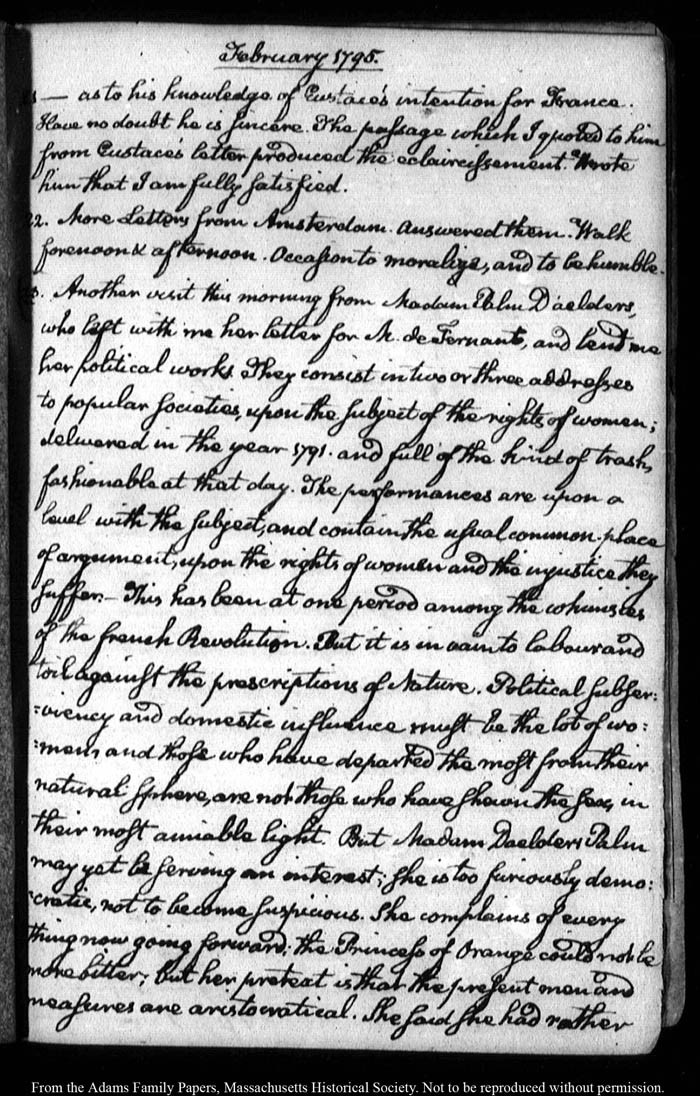 February 1795.
— as to his knowledge of Eustace's intention for France.
Have no doubt he is sincere. The passage which I quoted to him
from Eustace's letter produced the eclaircissement. Wrote
him that I am fully satisfied.
22. More Letters from Amsterdam. Answered them. Walk
forenoon & afternoon. Occasion to moralize, and to be humble.
Another visit this morning from Madam Palm Daelders,
who left with me her letter for M. de and lent me
her political works. They consist in two or three addresses
to popular societies, upon the subject of the rights of women;
delivered in the year 1791. and full of the kind of trash,
fashionable at that day. The performances are upon a
level with the subject, and contain the usual common-place
of argument, upon the rights of women and the injustice they
suffer.— This has been at one period among the whimsies
of the french Revolution. But it is in vain to labour and
toil against the prescriptions of Nature. Political subser:
:viency and domestic influence must be the lot of wo:
:men, and those who have departed the most from their
natural sphere, are not those who have shewn the sex, in
their most amiable light. But Madam Daelders Palm
may yet be serving an interest; she is too furiously demo:
:cratic, not to become suspicious. She complains of every
thing now going forward; the Princess of Orange could not be
more bitter; but her pretext is that the present men and
measures are aristocratical. She said she had rather
From the Adams Family Papers, Massachusetts Historical Society. Not to be reproduced without permission.